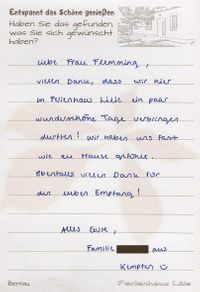 Entspannt das Schöne genießen
Haben Sie das gefunden,
was Sie sich gewünscht
haben?
Liebe Frau Flemming,
vielen Dank, dass wir hier
im Ferienhaus Lilie ein paar
wunderschöne Tage verbringen
durften! Wir haben uns fast
wie zu Hause gefühlt.
Ebenfalls vielen Dank für
den lieben Empfang!
Alles Gute,
Familie aus
Kempten
Bernau Ferienhaus Lilie